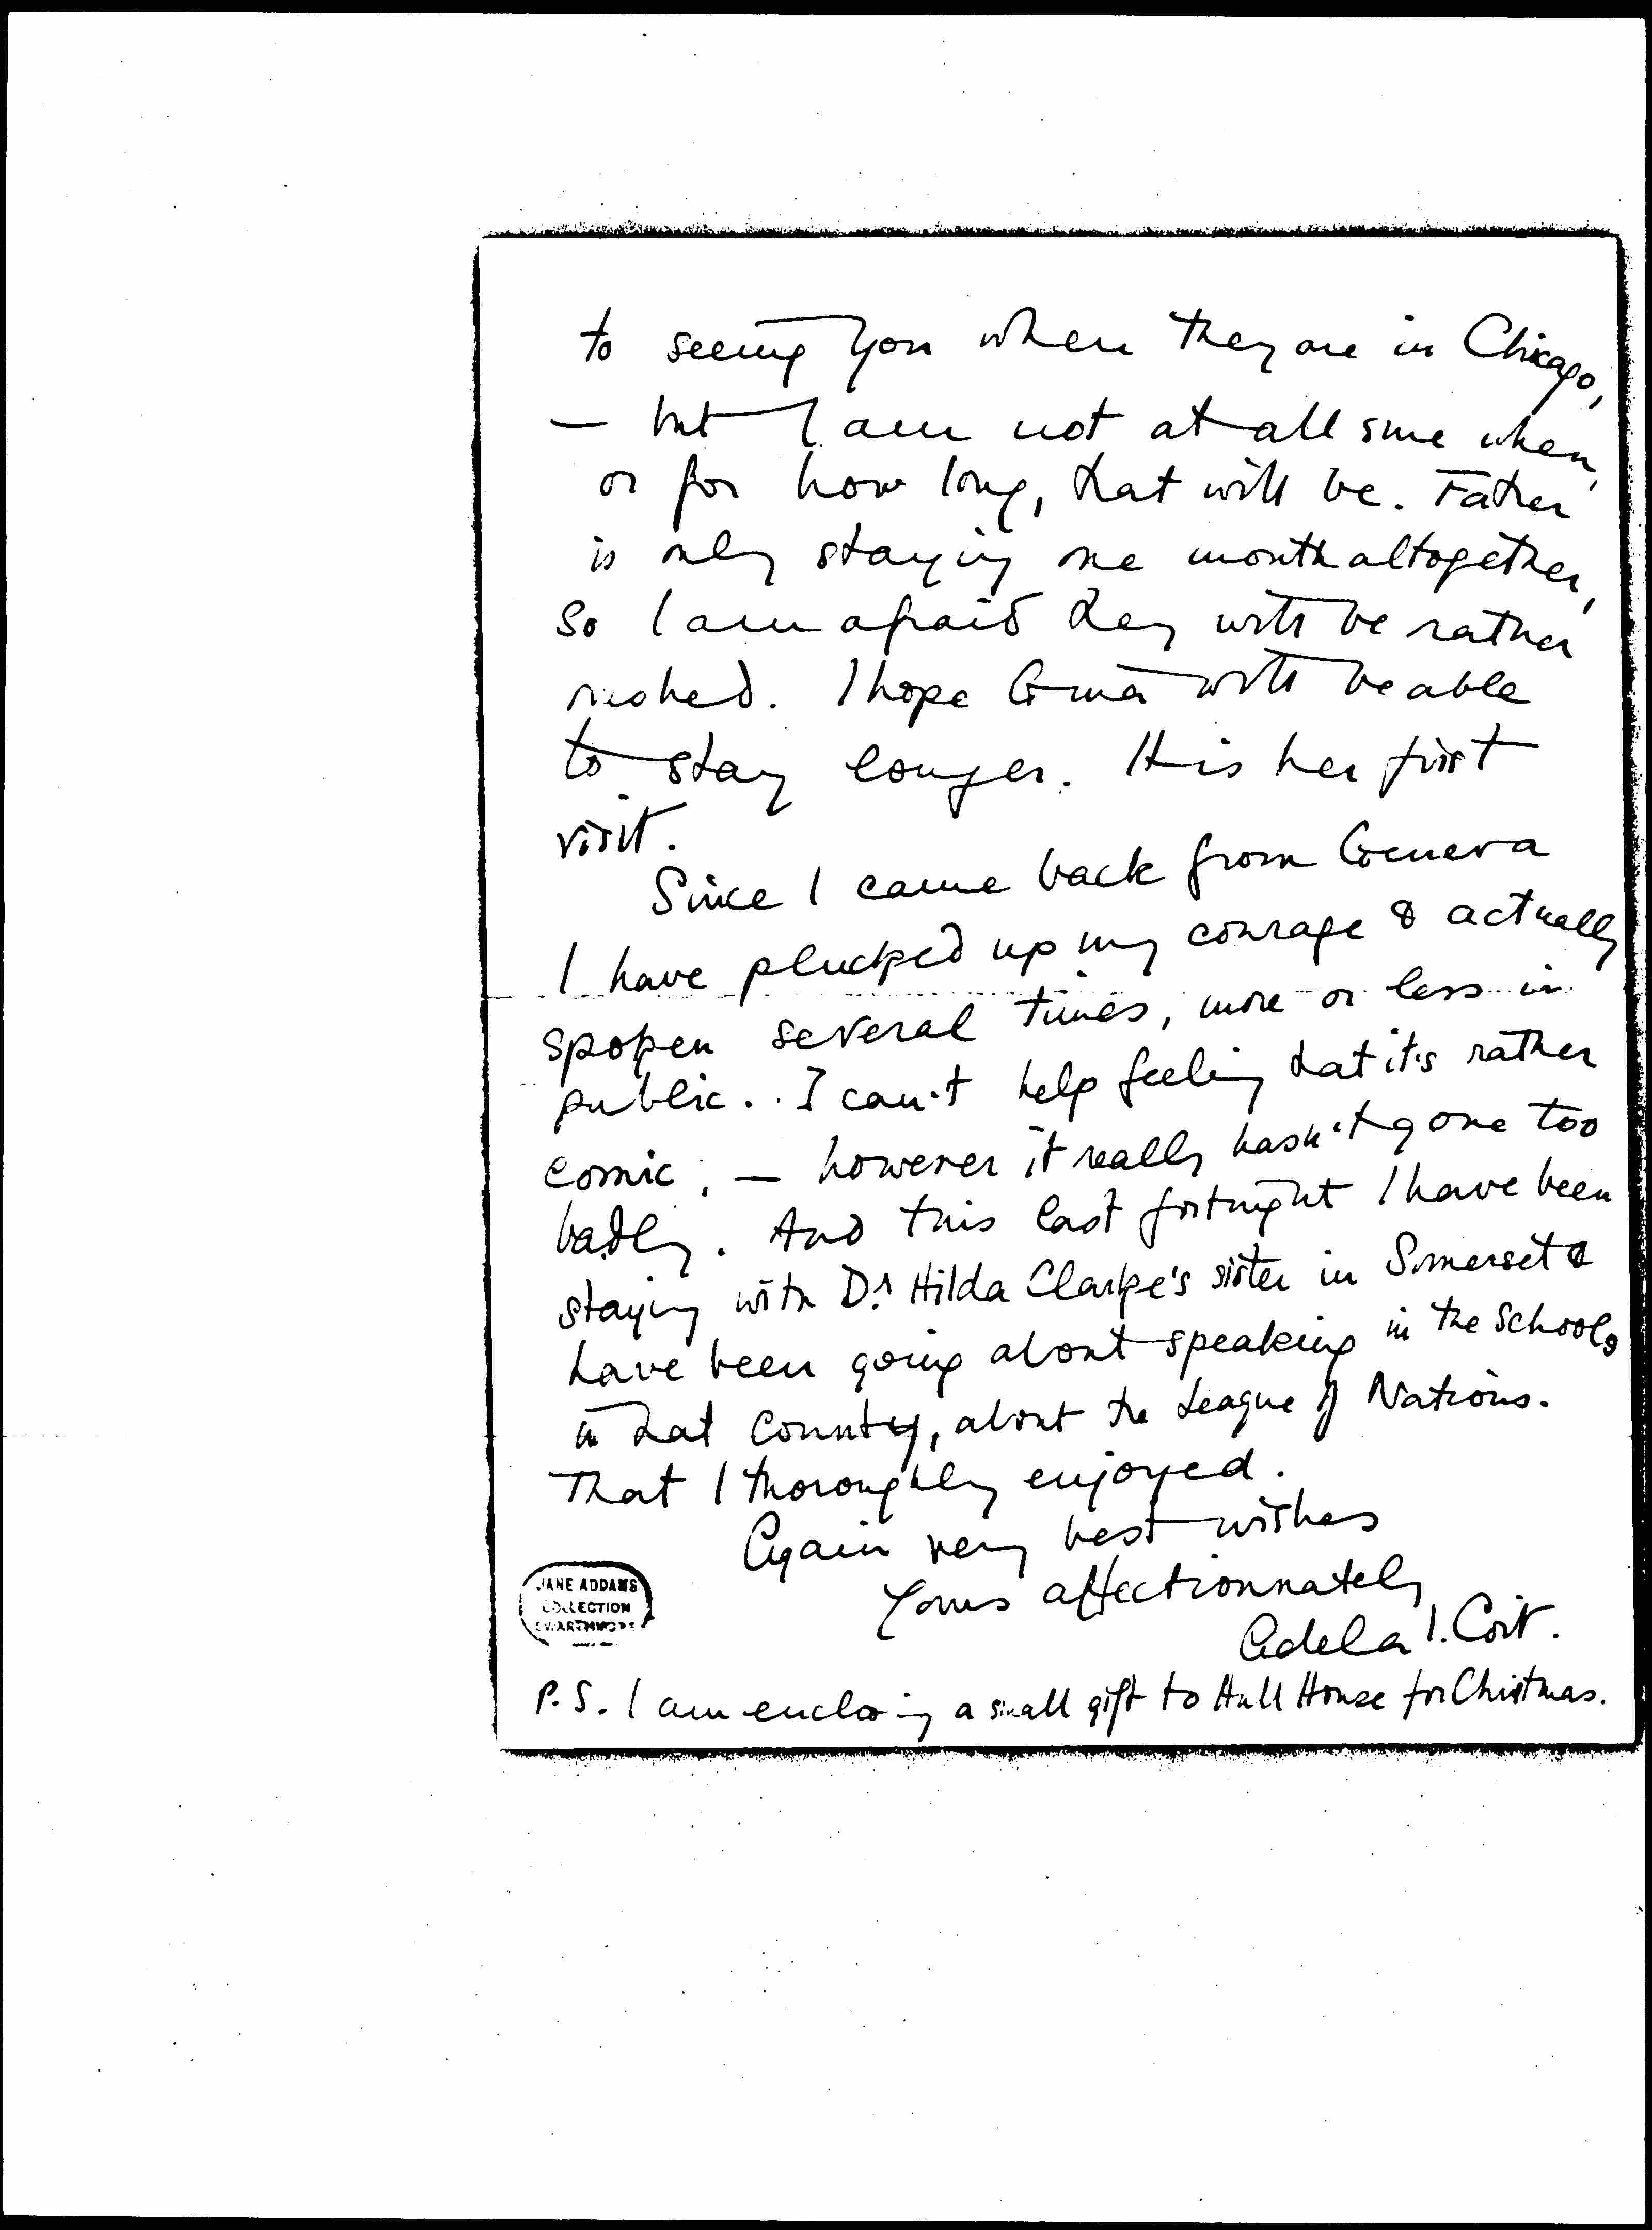 to seeing you when they are in Chicago,
— but I am not at all sure when,
or for how long, that will be. Father
is only staying one month altogether,
so I am afraid they will be rather
rushed. I hope will be able
to stay longer. It is her first
visit.
Since I came back from Geneva
I have plucked up my courage & actually
spoken several times, more or less in
public.. I can't help feeling that it's rather
comic; — however it really hasn't gone too
badly. And this last fortnight I have been
staying with Dr Hilda Clarke's sister in Somerset &
have been going about speaking in the schools
in that County, about the League of Nations.
That I thoroughly enjoyed.
Again very best wishes
Yours affectionnately
Adela I. Coit.
JANE ADDAMS
COLLECTION
SWARTHMORE
P.S. I am enclosing a small gift to Hull House for Christmas.